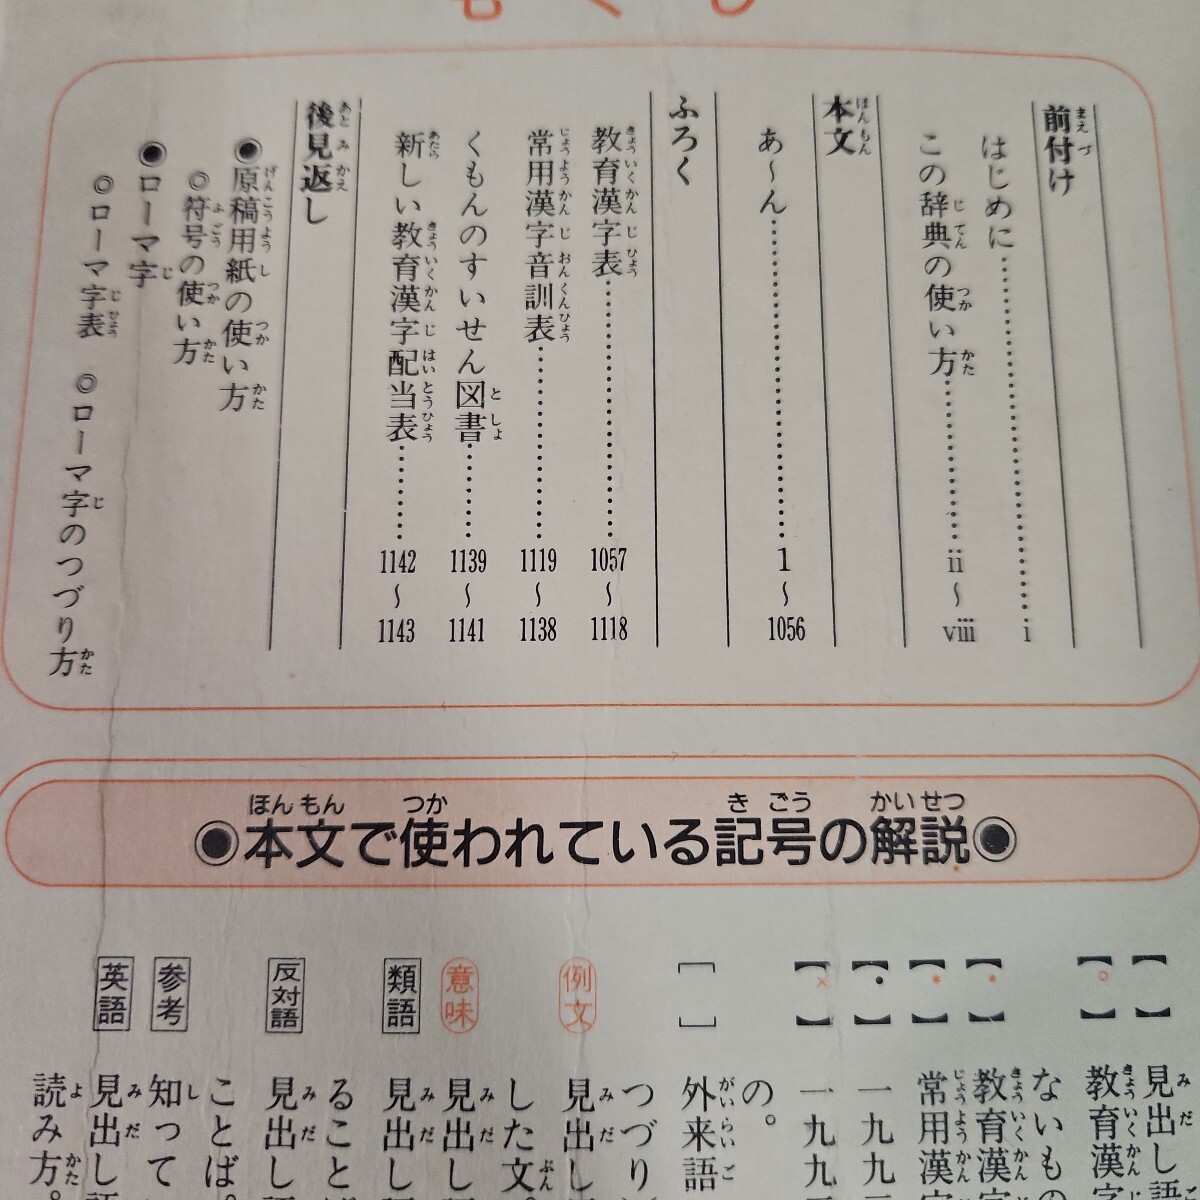 もくじ
前付け
はじめに……………………i
この辞典の使い方……………ii～viii
本文
あ～ん……………………1～1056
ふろく
教育漢字表……………………1057～1118
常用漢字音訓表………………1119～1138
くもんのすいせん図書………1139～1141
新しい教育漢字配当表………1142～1143
後見返し
◉原稿用紙の使い方
◎符号の使い方
◉ローマ字
◎ローマ字表 ◎ローマ字のつづり方
◉本文で使われている記号の解説◉
【 】見出し語
【○】教育漢字
ないもの
【*】教育漢字
【*】常用漢字
【・】一九九
【×】一九九
の。
［ ］外来語
つづり
例文 見出し
した文。
意味 見出し
類語 見出し語
ること
反対語 見出し語
ことば。
参考 知って
英語 見出し語
読み方。